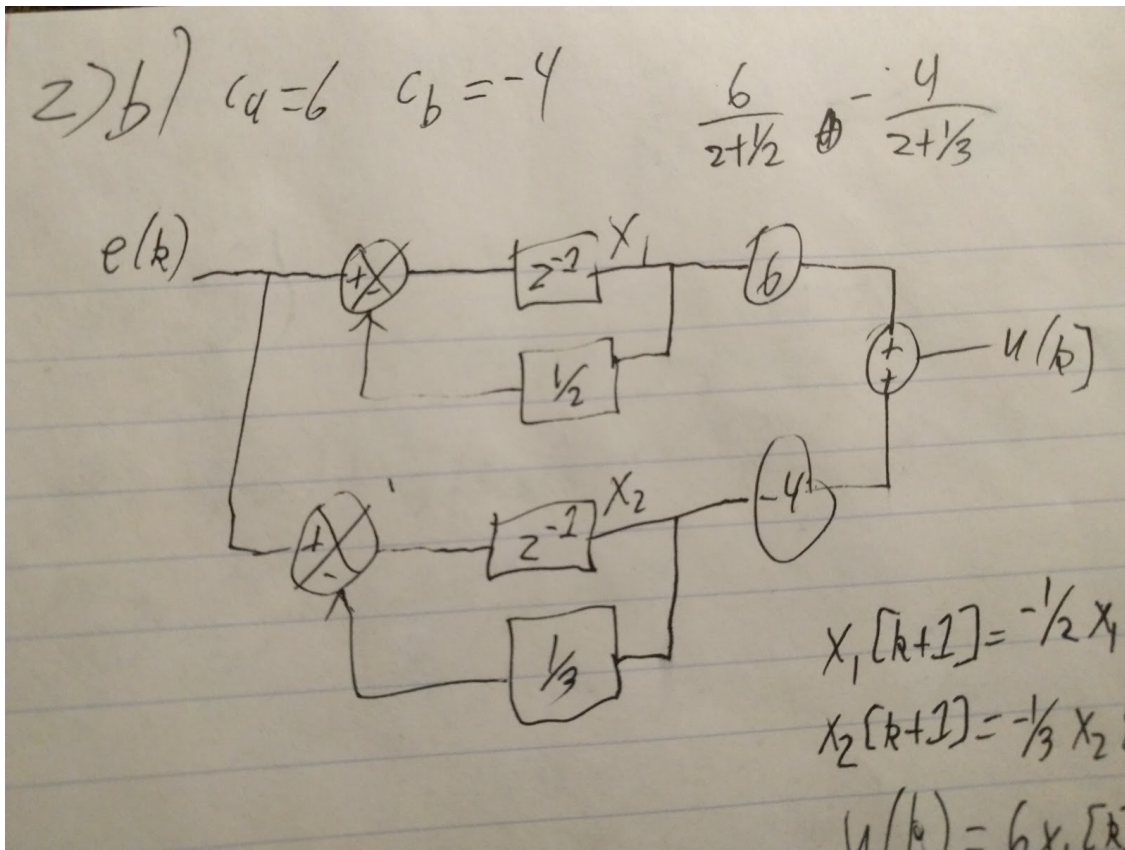 2)b) ca=6 cb=-4 6/(z+1/2) - 4/(z+1/3)
e(k) + - z^-1 X1 6
1/2
+ + u(k)
+ - z^-1 X2 -4
1/3
X1[k+1]=-1/2 X1
X2[k+1]=-1/3 X2
u(k)=6x1[k